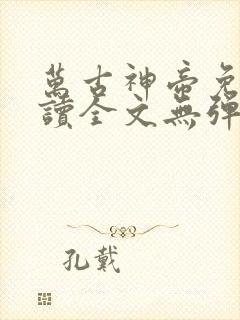 萬古神帝免
讀全文無彈
孔戴